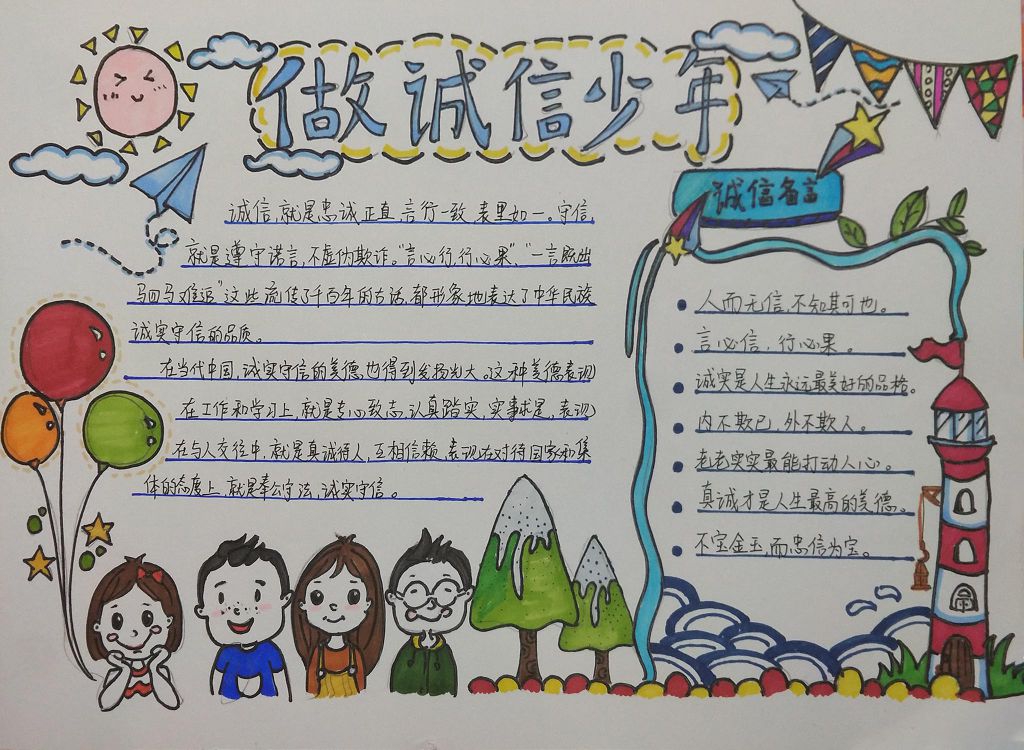 做诚信少年
诚信，就是忠诚正直，言行一致，表里如一。守信
就是遵守诺言，不虚伪欺诈。“言必行，行必果”，“一言既出
驷马难追”这些流传了千百年的古话，都形象地表达了中华民族
诚实守信的品质。
在当代中国，诚实守信的美德也得到发扬光大。这种美德表现
在工作和学习上，就是专心致志，认真踏实，实事求是，表现
在与人交往中，就是真诚待人，互相信赖，表现在对待国家和集
体的态度上，就是奉公守法，诚实守信。
诚信名言
人而无信，不知其可也。
言必信，行必果。
诚实是人生永远最美好的品格。
内不欺己，外不欺人。
老老实实最能打动人心。
真诚才是人生最高的美德。
不宝金玉，而忠信为宝。